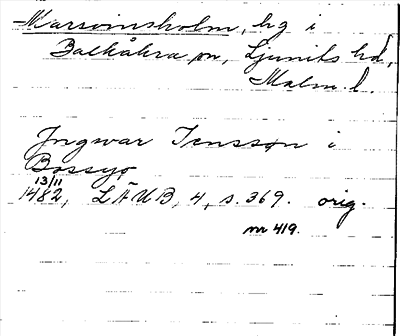 Marsvinsholm, hg i
Balkåkra sn, Ljunits hd,
Malm. l.
Jngwar Jenssøn i
Bossyø
13/11
1482, LÄUB, 4, s. 369. orig.
nr 419.